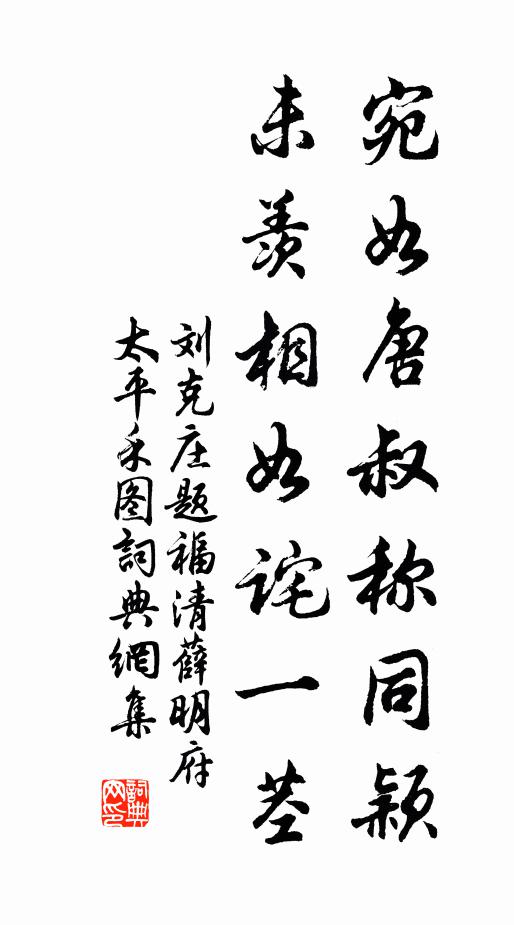 宛如唐叔称同颖
未羡相如诧一茎
刘克庄题福清薛明府
太平禾图詞典網集
詞典网印